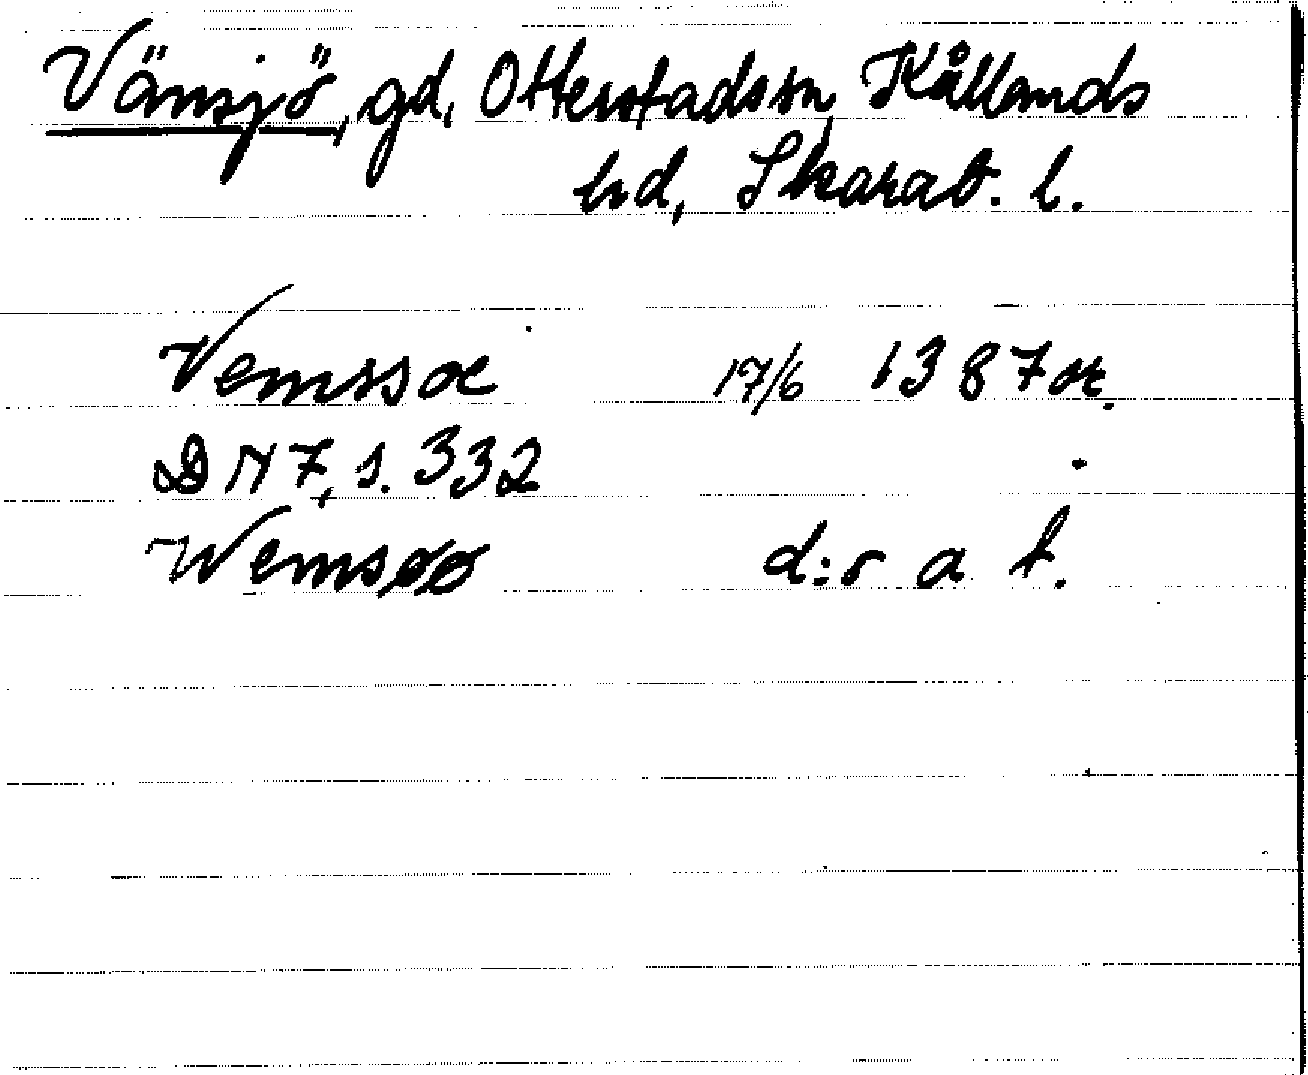 Vänsjö, gd, Otterstadssn, Kållands
hd, Skarab. l.
Vemssoe 17/6 1387 or.
DN 7, s. 332
Wemsøø d:o a t.